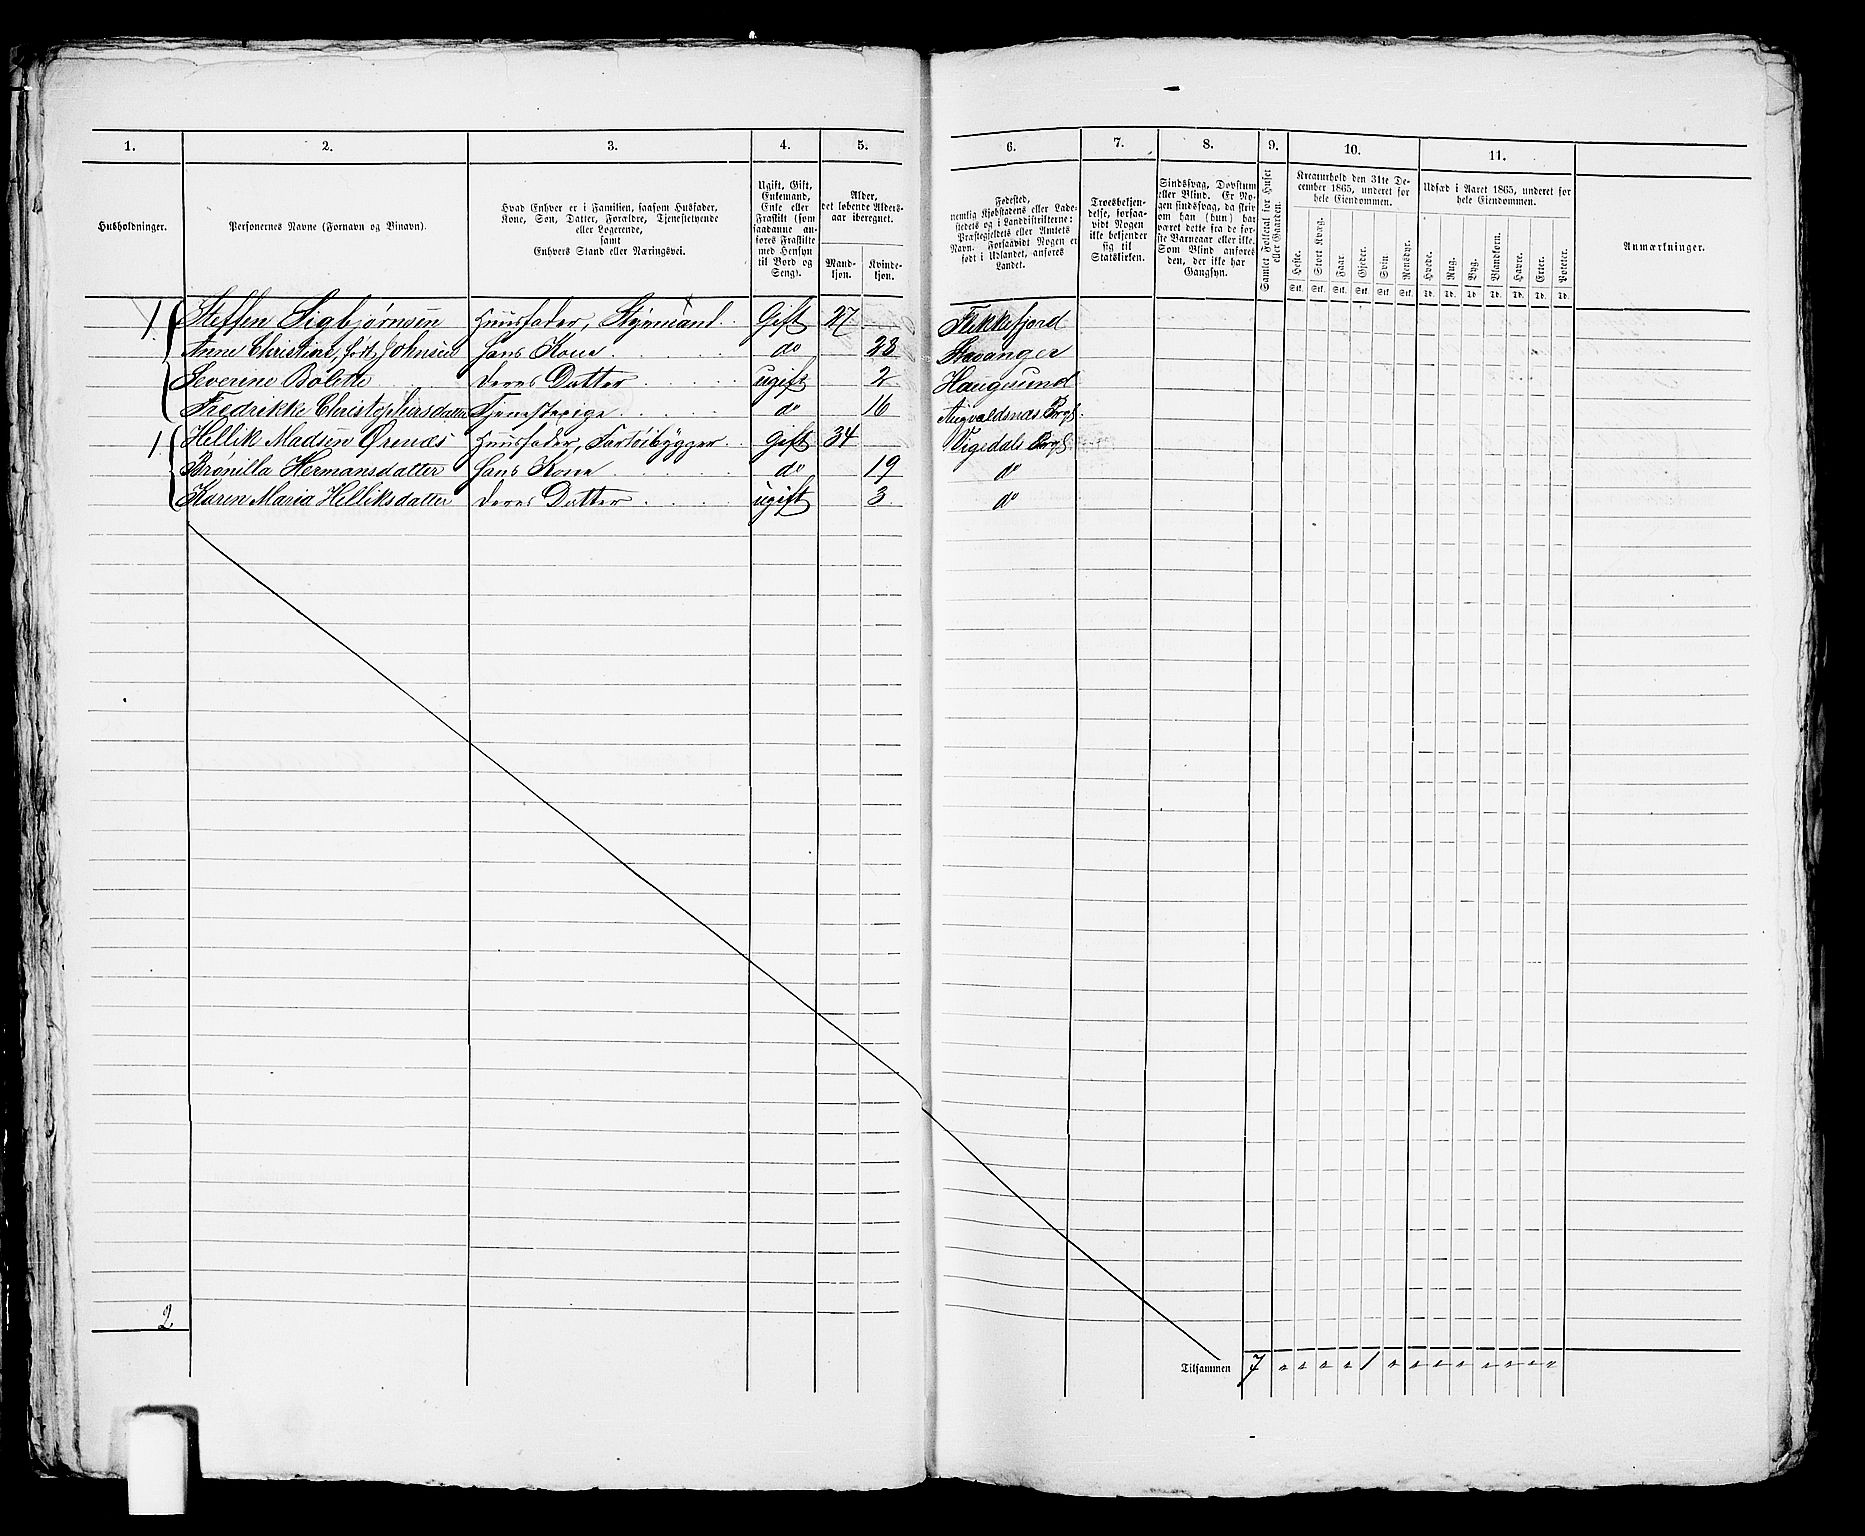 1. 2. 3. 4. 5. 6. 7. 8. 9. 10. 11.
Husholdninger.
Personernes Navne (Fornavn og Binavn).
Hvad Enhver er i Familien, saasom Husfader,
Kone, Søn, Datter, Forældre, Tjenestetyende
eller Logerende,
samt
Enhvers Stand eller Næringsvei.
Ugift, Gift,
Enkemand,
Enke eller
Fraskilt (som
saadanne an-
føres Fraskilte
med Hensyn
til Bord og
Seng).
Alder,
det løbende Alders-
aar iberegnet.
Mand-
kjøn.
Kvinde-
kjøn.
Fødested,
nemlig Kjøbstadens eller Lade-
stedets og i Landdistrikterne:
Præstegjeldets eller Amtets
Navn. Forsaavidt Nogen er
født i Udlandet, anføres
Landet.
Troesbekjen-
delse, forsaa-
vidt Nogen
ikke bekjender
sig til
Statskirken.
Sindssvag, Døvstum
eller Blind. Er No-
gen sindssvag, da skriv
om han (hun) har
været dette fra de før-
ste Barneaar eller ikke.
Som Blind anføres
den, der ikke har
Gangsyn.
Samlet Folketal for Huset
eller Gaarden.
Kreaturhold den 31te De-
cember 1865, underet for
hele Eiendommen.
Heste. Stort Kvæg. Faar. Gjeder. Svin. Rensdyr.
Stk. Stk. Stk. Stk. Stk. Stk.
Udsæd i Aaret 1865, underet for
hele Eiendommen.
Hvede. Rug. Byg. Blandkorn. Havre. Erter. Poteter.
Td. Td. Td. Td. Td. Td. Td.
Anmærkninger.
1 Steffen Sigbjørnsen Huusfader, Styrmand. Gift 27 Flekkefjord
Anne Christine, født Johnsen Hans Kone do 28 Stavanger
Severine Bolette Deres Datter ugift 2 Haugesund
Fredrikke Christophersdatter Tjenestepige do 16 Augvaldsnæs Prgj.
1 Hellik Madsen Ørenæs Huusfader, Fartøibygger Gift 34 Vigedals Prgj.
Brønilla Hermansdatter Hans Kone do 19 do
Karen Maria Helliksdatter Deres Datter ugift 3 do
2
Tilsammen 7 " " " " 1 " " " " " " " "